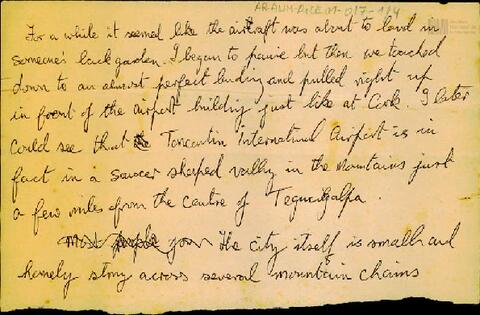 ARAUM-RICE M-0/7-1/4
For a while it seemed like the aircraft was about to land in
someone's back garden. I began to panic but then we touched
down to an almost perfect landing and pulled right up
in front of the airport building just like at Cork. I later
could see that Toncontin International Airport is in
fact in a saucer shaped valley in the mountains just
a few miles from the centre of Tegucigalpa.
most people you The city itself is small and
homely stony across several mountain chains